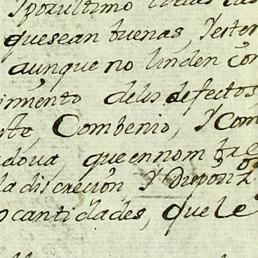 Yporultimo
quesean buenas, Yester
aunque no linden con
imiento delos defectos
Combenio, Y Com
dova, que ennom
la discrecion Y Dispon
o cantidades, que Le